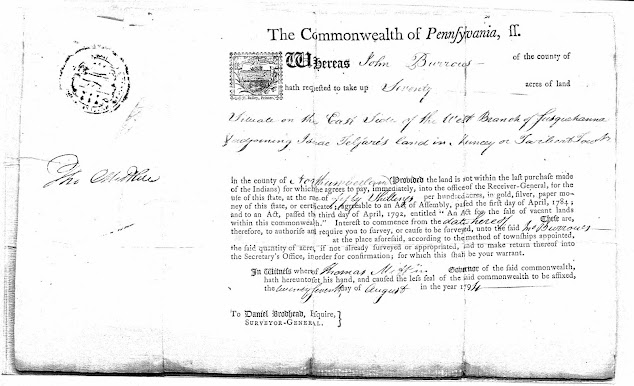 The Commonwealth of Pennsylvania, ss.
Whereas John Burrows of the county of
hath requested to take up Seventy acres of land
Situate on the East Side of the West Branch of Susquehanna
& adjoining Isaac land in Muncy or
In the county of Northumberland (Provided the land is not within the last purchase made
of the Indians) for which he agrees to pay, immediately, into the office of the Receiver-General, for the
use of this state, at the rate of fifty Shillings per hundred acres, in gold, silver, paper mo-
ney of this state, or certificates, agreeable to an Act of Assembly, passed the first day of April, 1784;
and to an Act, passed the third day of April, 1792, entitled "An Act for the sale of vacant lands
within this commonwealth." Interest to commence from the date hereof These are,
therefore, to authorise and require you to survey, or cause to be surveyed, unto the said Jno Burrows
at the place aforesaid, according to the method of townships appointed,
the said quantity of acres, if not already surveyed or appropriated, and to make return thereof into
the Secretary's Office, in order for confirmation; for which this shall be your warrant.
In Witness whereof Thomas Mifflin Governor of the said commonwealth,
hath hereunto set his hand, and caused the less seal of the said commonwealth to be affixed,
the twenty seventh day of August in the year 1794
To Daniel Brodhead, Esquire,
Surveyor-General.
Tho Mifflin